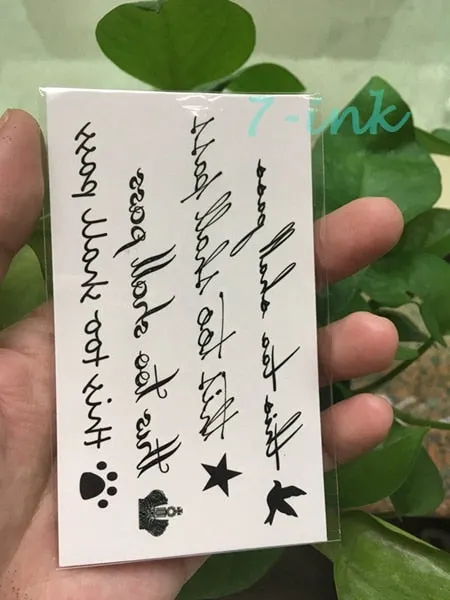 7-ink
this too shall pass
this too shall pass
this too shall pass
this too shall pass